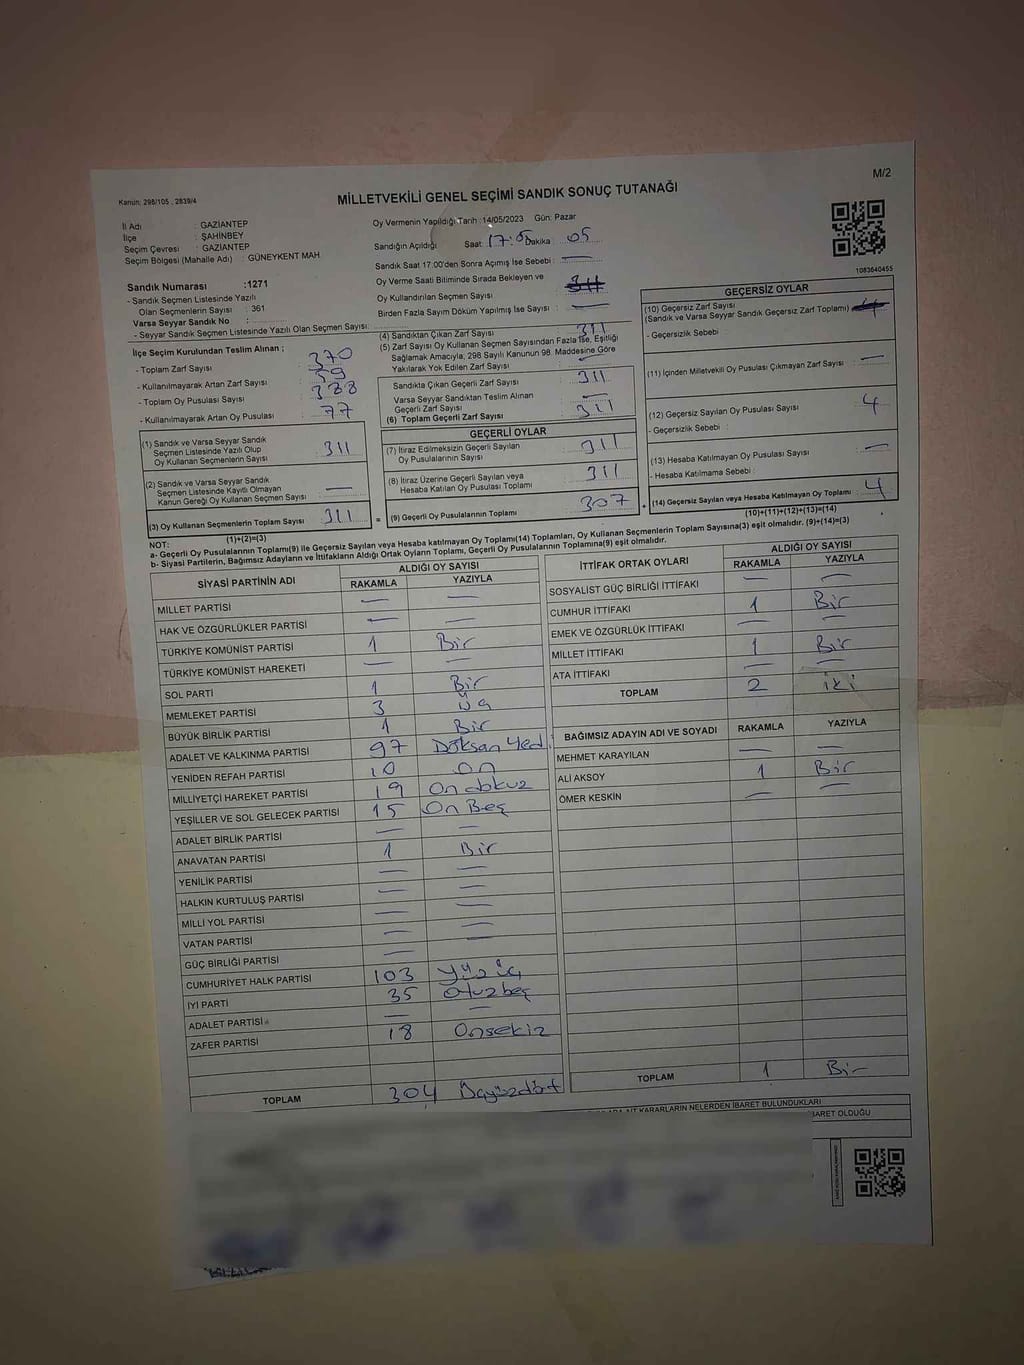 M/2
Kanun: 298/105 , 2839/4
MİLLETVEKİLİ GENEL SEÇİMİ SANDIK SONUÇ TUTANAĞI
İl Adı : GAZİANTEP
İlçe : ŞAHİNBEY
Seçim Çevresi : GAZİANTEP
Seçim Bölgesi (Mahalle Adı) : GÜNEYKENT MAH.
Oy Vermenin Yapıldığı Tarih :14/05/2023 Gün: Pazar
Sandığın Açıldığı Saat: 17:05 Dakika : 05
Sandık Saat 17.00'den Sonra Açımış İse Sebebi : —
Oy Verme Saati Bitiminde Sırada Bekleyen ve
Oy Kullandırılan Seçmen Sayısı : 311
Birden Fazla Sayım Döküm Yapılmış İse Sayısı : —
Sandık Numarası :1271
- Sandık Seçmen Listesinde Yazılı
Olan Seçmenlerin Sayısı : 361
Varsa Seyyar Sandık No :
- Seyyar Sandık Seçmen Listesinde Yazılı Olan Seçmen Sayısı:
İlçe Seçim Kurulundan Teslim Alınan ;
- Toplam Zarf Sayısı : 370
- Kullanılmayarak Artan Zarf Sayısı : 59
- Toplam Oy Pusulası Sayısı : 388
- Kullanılmayarak Artan Oy Pusulası : 77
(4) Sandıktan Çıkan Zarf Sayısı : 311
(5) Zarf Sayısı Oy Kullanan Seçmen Sayısından Fazla İse, Eşitliği
Sağlamak Amacıyla, 298 Sayılı Kanunun 98. Maddesine Göre
Yakılarak Yok Edilen Zarf Sayısı : —
Sandıkta Çıkan Geçerli Zarf Sayısı : 311
Varsa Seyyar Sandıktan Teslim Alınan
Geçerli Zarf Sayısı : —
(6) Toplam Geçerli Zarf Sayısı : 311
(1) Sandık ve Varsa Seyyar Sandık
Seçmen Listesinde Yazılı Olup
Oy Kullanan Seçmenlerin Sayısı : 311
(2) Sandık ve Varsa Seyyar Sandık
Seçmen Listesinde Kayıtlı Olmayan
Kanun Gereği Oy Kullanan Seçmen Sayısı : —
(3) Oy Kullanan Seçmenlerin Toplam Sayısı : 311
(1)+(2)=(3)
GEÇERLİ OYLAR
(7) İtiraz Edilmeksizin Geçerli Sayılan
Oy Pusulalarının Sayısı : 311
(8) İtiraz Üzerine Geçerli Sayılan veya
Hesaba Katılan Oy Pusulası Toplamı : 311
= (9) Geçerli Oy Pusulalarının Toplamı : 307
1083640455
GEÇERSİZ OYLAR
(10) Geçersiz Zarf Sayısı
(Sandık ve Varsa Seyyar Sandık Geçersiz Zarf Toplamı)
- Geçersizlik Sebebi :
(11) İçinden Milletvekili Oy Pusulası Çıkmayan Zarf Sayısı : —
(12) Geçersiz Sayılan Oy Pusulası Sayısı : 4
- Geçersizlik Sebebi :
(13) Hesaba Katılmayan Oy Pusulası Sayısı : —
- Hesaba Katılmama Sebebi :
+ (14) Geçersiz Sayılan veya Hesaba Katılmayan Oy Toplamı : 4
(10)+(11)+(12)+(13)=(14)
NOT:
a- Geçerli Oy Pusulalarının Toplamı(9) ile Geçersiz Sayılan veya Hesaba katılmayan Oy Toplamı(14) Toplamları, Oy Kullanan Seçmenlerin Toplam Sayısına(3) eşit olmalıdır. (9)+(14)=(3)
b- Siyasi Partilerin, Bağımsız Adayların ve İttifakların Aldığı Ortak Oyların Toplamı, Geçerli Oy Pusulalarının Toplamına(9) eşit olmalıdır.
SİYASİ PARTİNİN ADI ALDIĞI OY SAYISI
RAKAMLA YAZIYLA
MİLLET PARTİSİ — —
HAK VE ÖZGÜRLÜKLER PARTİSİ — —
TÜRKİYE KOMÜNİST PARTİSİ 1 Bir
TÜRKİYE KOMÜNİST HAREKETİ — —
SOL PARTİ 1 Bir
MEMLEKET PARTİSİ 3 Üç
BÜYÜK BİRLİK PARTİSİ 1 Bir
ADALET VE KALKINMA PARTİSİ 97 Doksan Yedi
YENİDEN REFAH PARTİSİ 10 on
MİLLİYETÇİ HAREKET PARTİSİ 19 On dokuz
YEŞİLLER VE SOL GELECEK PARTİSİ 15 On Beş
ADALET BİRLİK PARTİSİ — —
ANAVATAN PARTİSİ 1 Bir
YENİLİK PARTİSİ — —
HALKIN KURTULUŞ PARTİSİ — —
MİLLİ YOL PARTİSİ — —
VATAN PARTİSİ — —
GÜÇ BİRLİĞİ PARTİSİ — —
CUMHURİYET HALK PARTİSİ 103 Yüz üç
İYİ PARTİ 35 Otuzbeş
ADALET PARTİSİ — —
ZAFER PARTİSİ 18 Onsekiz
TOPLAM 304 Üçyüzdört
İTTİFAK ORTAK OYLARI ALDIĞI OY SAYISI
RAKAMLA YAZIYLA
SOSYALİST GÜÇ BİRLİĞİ İTTİFAKI — —
CUMHUR İTTİFAKI 1 Bir
EMEK VE ÖZGÜRLÜK İTTİFAKI — —
MİLLET İTTİFAKI 1 Bir
ATA İTTİFAKI — —
TOPLAM 2 iki
BAĞIMSIZ ADAYIN ADI VE SOYADI RAKAMLA YAZIYLA
MEHMET KARAYILAN — —
ALİ AKSOY 1 Bir
ÖMER KESKİN — —
TOPLAM 1 Bir
KARARLARIN NELERDEN İBARET BULUNDUKLARI
İBARET OLDUĞU